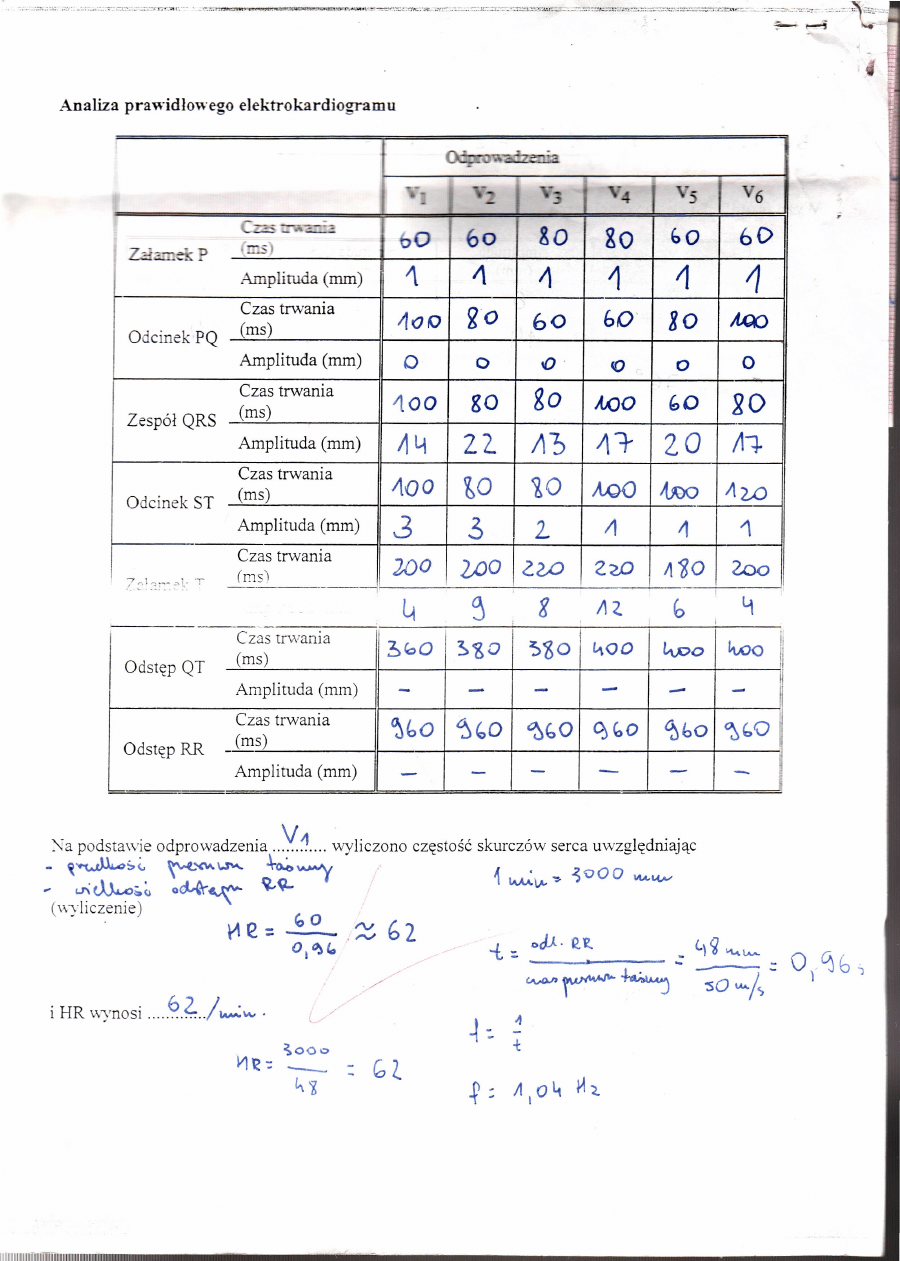 Analiza prawidłowego elektrokardiogramu
Odprowadzenia
V1 V2 V3 V4 V5 V6
Załamek P
Czas trwania (ms) 60 60 80 80 60 60
Amplituda (mm) 1 1 1 1 1 1
Odcinek PQ
Czas trwania (ms) 100 80 60 60 80 100
Amplituda (mm) 0 0 0 0 0 0
Zespół QRS
Czas trwania (ms) 100 80 80 100 60 80
Amplituda (mm) 14 22 13 17 20 17
Odcinek ST
Czas trwania (ms) 100 80 80 100 100 120
Amplituda (mm) 3 3 2 1 1 1
Załamek T
Czas trwania (ms) 200 200 220 220 180 200
4 9 8 12 6 4
Odstęp QT
Czas trwania (ms) 360 380 380 400 400 400
Amplituda (mm) – – – – – –
Odstęp RR
Czas trwania (ms) 960 960 960 960 960 960
Amplituda (mm) – – – – – –
Na podstawie odprowadzenia ...V1... wyliczono częstość skurczów serca uwzględniając
- prędkość przesuwu taśmy
- wielkość odstępu RR
1 min = 3000 mm
(wyliczenie)
HR = 60 / 0,96 ≈ 62
t = odl. RR / czas przesuwu taśmy = 48 mm / 50 m/s = 0,96 s
i HR wynosi ...62.../min.
f = 1 / t
HR = 3000 / 48 = 62
f = 1,04 Hz